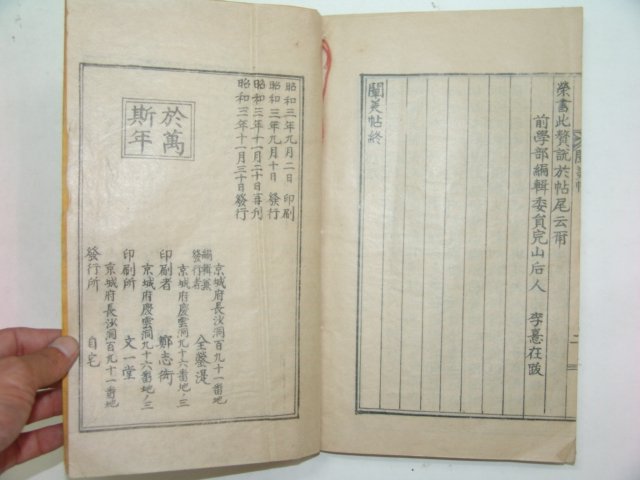 榮書此贅說於帖尾云爾
前學部編輯委員完山后人 李憙在跋
闡美帖終
昭和三年九月二日 印刷
昭和三年九月十日 發行
昭和三年十一月二十日再刊
昭和三年十一月三十日發行
於萬
斯年
京城府長沙洞百九十一番地
編輯兼
發行者 全榮湜
京城府慶雲洞九十六番地ノ三
印刷者 鄭志衍
京城府慶雲洞九十六番地ノ三
印刷所 文一堂
京城府長沙洞百九十一番地
發行所 自宅